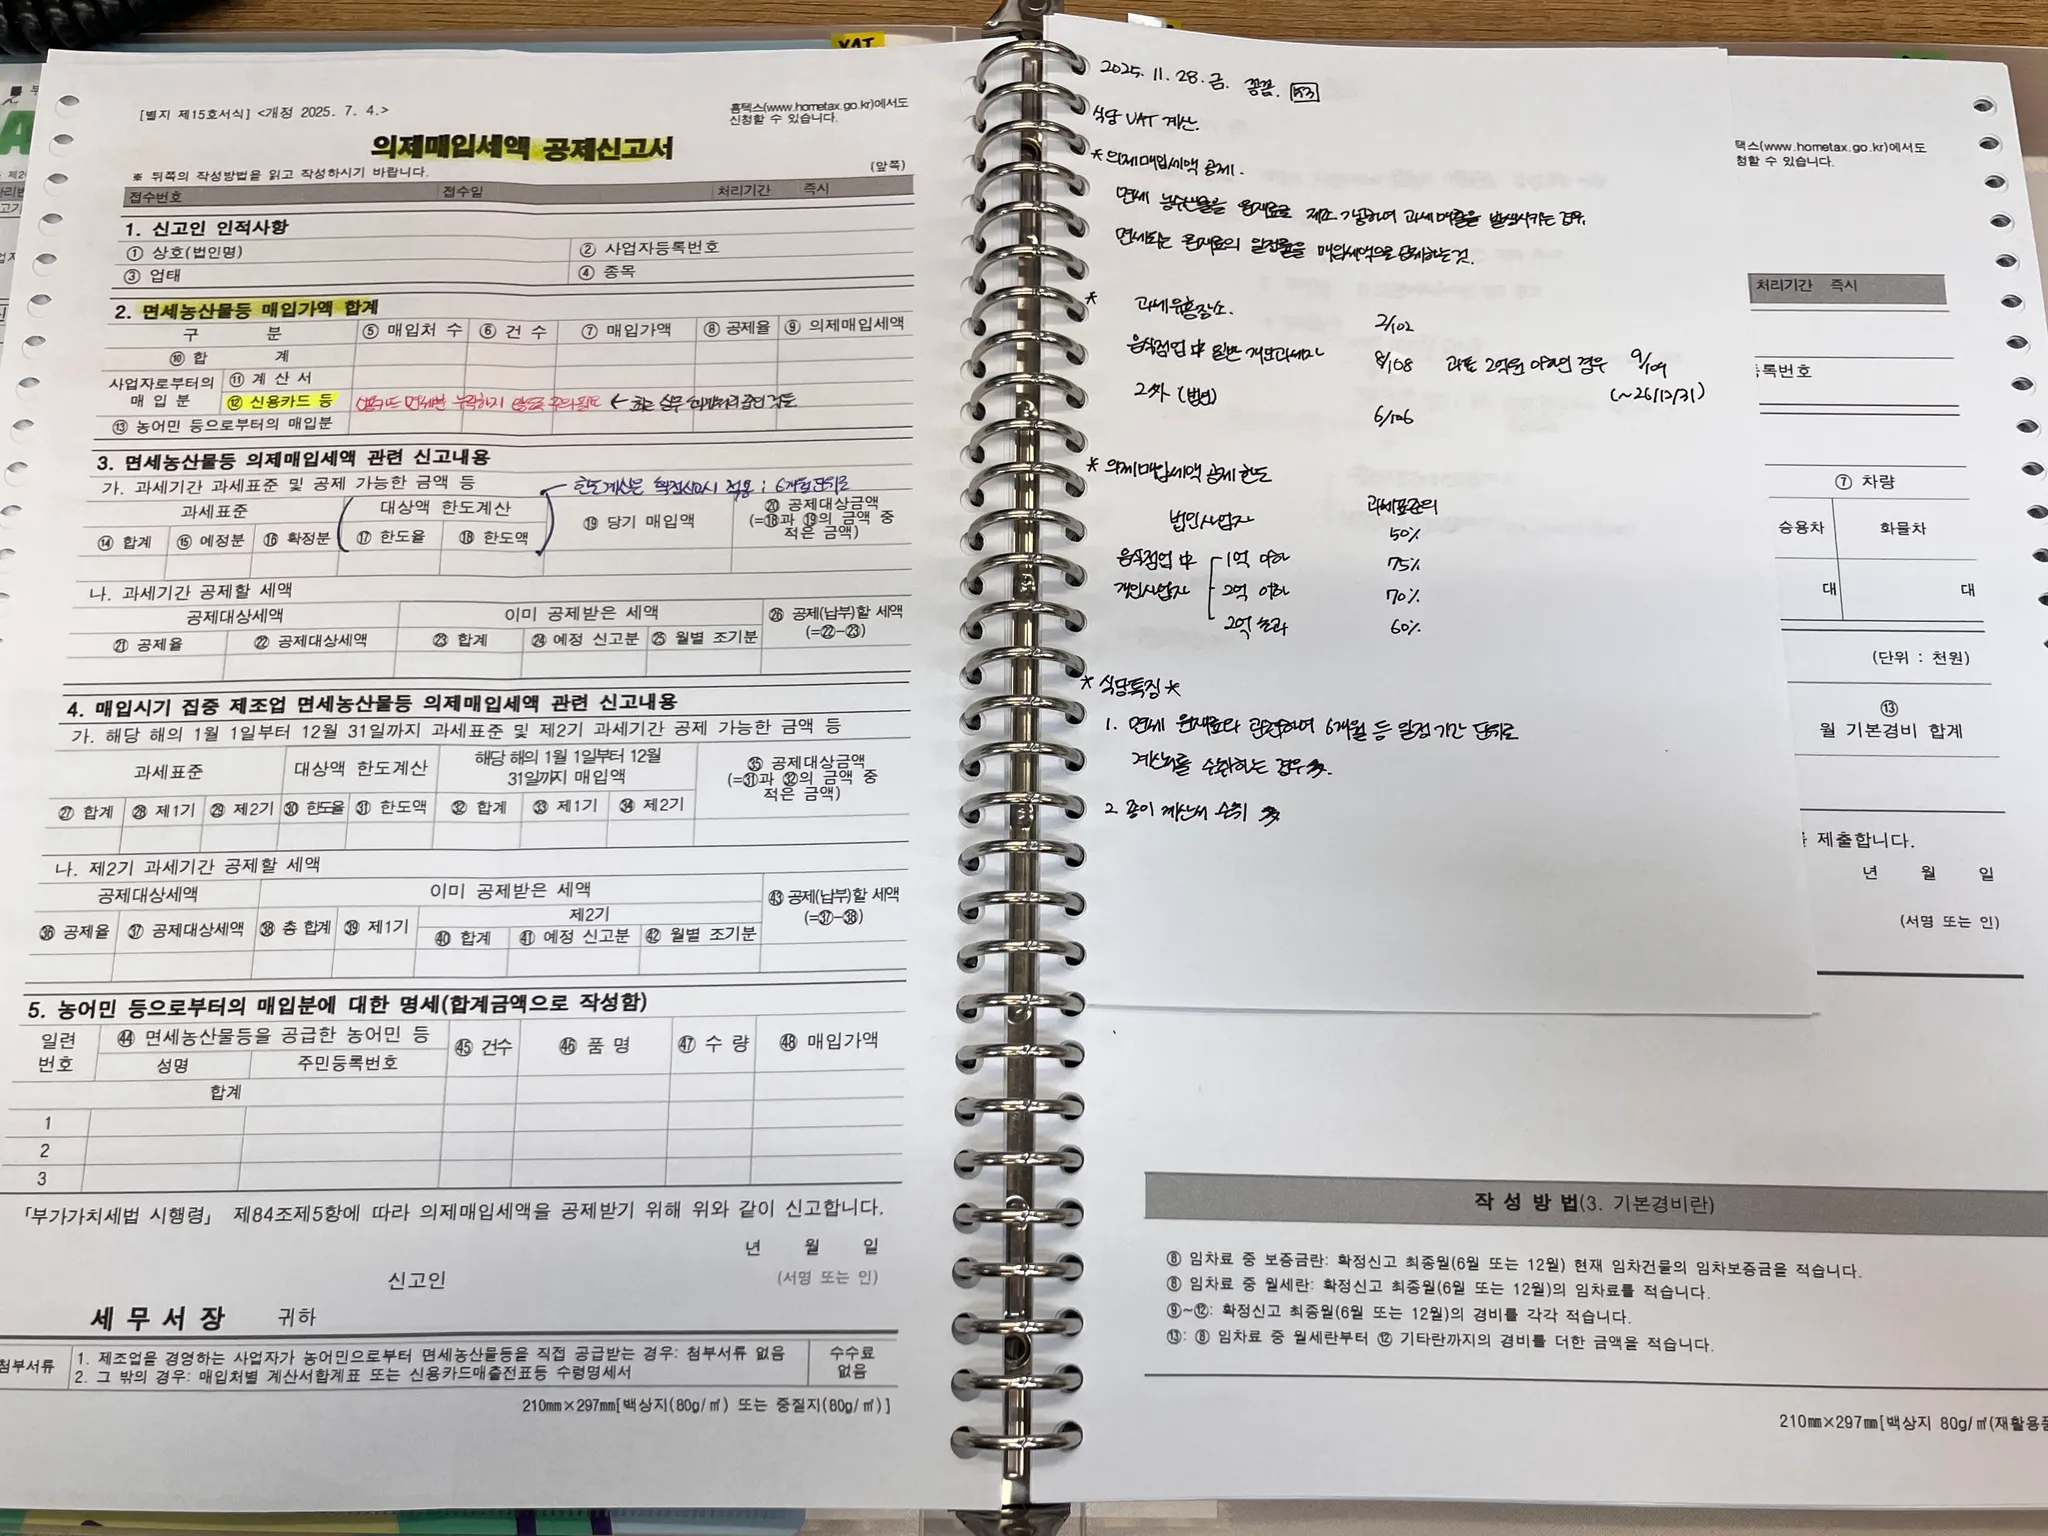 VAT
[별지 제15호서식] <개정 2025. 7. 4.>
홈텍스(www.hometax.go.kr)에서도
신청할 수 있습니다.
의제매입세액 공제신고서
※ 뒤쪽의 작성방법을 읽고 작성하시기 바랍니다.
(앞쪽)
접수번호 접수일 처리기간 즉시
1. 신고인 인적사항
① 상호(법인명) ② 사업자등록번호
③ 업태 ④ 종목
2. 면세농산물등 매입가액 합계
구 분 ⑤ 매입처 수 ⑥ 건 수 ⑦ 매입가액 ⑧ 공제율 ⑨ 의제매입세액
⑩ 합 계
사업자로부터의
매 입 분
⑪ 계 산 서
⑫ 신용카드 등 면세분 누락하지 않도록 주의필요 ←
⑬ 농어민 등으로부터의 매입분
3. 면세농산물등 의제매입세액 관련 신고내용
가. 과세기간 과세표준 및 공제 가능한 금액 등
한도계산은 확정신고시 적용 : 6개월단위로
과세표준 대상액 한도계산 ⑲ 당기 매입액
⑳ 공제대상금액
(=⑱과 ⑲의 금액 중
적은 금액)
⑭ 합계 ⑮ 예정분 ⑯ 확정분 ⑰ 한도율 ⑱ 한도액
나. 과세기간 공제할 세액
공제대상세액 이미 공제받은 세액
㉖ 공제(납부)할 세액
(=㉒-㉓)
㉑ 공제율 ㉒ 공제대상세액 ㉓ 합계 ㉔ 예정 신고분 ㉕ 월별 조기분
4. 매입시기 집중 제조업 면세농산물등 의제매입세액 관련 신고내용
가. 해당 해의 1월 1일부터 12월 31일까지 과세표준 및 제2기 과세기간 공제 가능한 금액 등
과세표준 대상액 한도계산
해당 해의 1월 1일부터 12월
31일까지 매입액
㉟ 공제대상금액
(=㉛과 ㉜의 금액 중
적은 금액)
㉗ 합계 ㉘ 제1기 ㉙ 제2기 ㉚ 한도율 ㉛ 한도액 ㉜ 합계 ㉝ 제1기 ㉞ 제2기
나. 제2기 과세기간 공제할 세액
공제대상세액 이미 공제받은 세액
㊸ 공제(납부)할 세액
(=㊲-㊳)
㊱ 공제율 ㊲ 공제대상세액 ㊳ 총 합계 ㊴ 제1기
제2기
㊵ 합계 ㊶ 예정 신고분 ㊷ 월별 조기분
5. 농어민 등으로부터의 매입분에 대한 명세(합계금액으로 작성함)
일련
번호
㊹ 면세농산물등을 공급한 농어민 등
성명 주민등록번호
㊺ 건수 ㊻ 품 명 ㊼ 수 량 ㊽ 매입가액
합계
1
2
3
「부가가치세법 시행령」 제84조제5항에 따라 의제매입세액을 공제받기 위해 위와 같이 신고합니다.
년 월 일
신고인 (서명 또는 인)
세 무 서 장 귀하
첨부서류
1. 제조업을 경영하는 사업자가 농어민으로부터 면세농산물등을 직접 공급받는 경우: 첨부서류 없음
2. 그 밖의 경우: 매입처별 계산서합계표 또는 신용카드매출전표등 수령명세서
수수료
없음
210㎜×297㎜[백상지(80g/㎡) 또는 중질지(80g/㎡)]
2025. 11. 28. 금.
식당 VAT 계산.
* 의제매입세액 공제.
면세 농수산물을 원재료로 제조 가공하여 과세매출을 발생시키는 경우.
면세되는 원재료의 일정률을 매입세액으로 공제하는것.
* 과세유흥장소. 2/102
음식점업 中 일반 개인과세자 8/108 과표 2억원 이하인 경우 9/109
(~26/12/31)
(법인) 6/106
* 의제매입세액 공제한도
과세표준의
법인사업자 50%
음식점업 中 1억 이하 75%
개인사업자 2억 이하 70%
2억 초과 60%
* 식당특징 *
1. 면세 원재료다 6개월 등 일정 기간 단위로
계산서를 수취하는 경우多.
2. 종이 계산서 수취 多
텍스(www.hometax.go.kr)에서도
청할 수 있습니다.
처리기간 즉시
등록번호
⑦ 차량
승용차 화물차
대 대
(단위 : 천원)
⑬
월 기본경비 합계
제출합니다.
년 월 일
(서명 또는 인)
작 성 방 법(3. 기본경비란)
⑧ 임차료 중 보증금란: 확정신고 최종월(6월 또는 12월) 현재 임차건물의 임차보증금을 적습니다.
⑧ 임차료 중 월세란: 확정신고 최종월(6월 또는 12월)의 임차료를 적습니다.
⑨~⑫: 확정신고 최종월(6월 또는 12월)의 경비를 각각 적습니다.
⑬: ⑧ 임차료 중 월세란부터 ⑫ 기타란까지의 경비를 더한 금액을 적습니다.
210㎜×297㎜[백상지 80g/㎡(재활용품